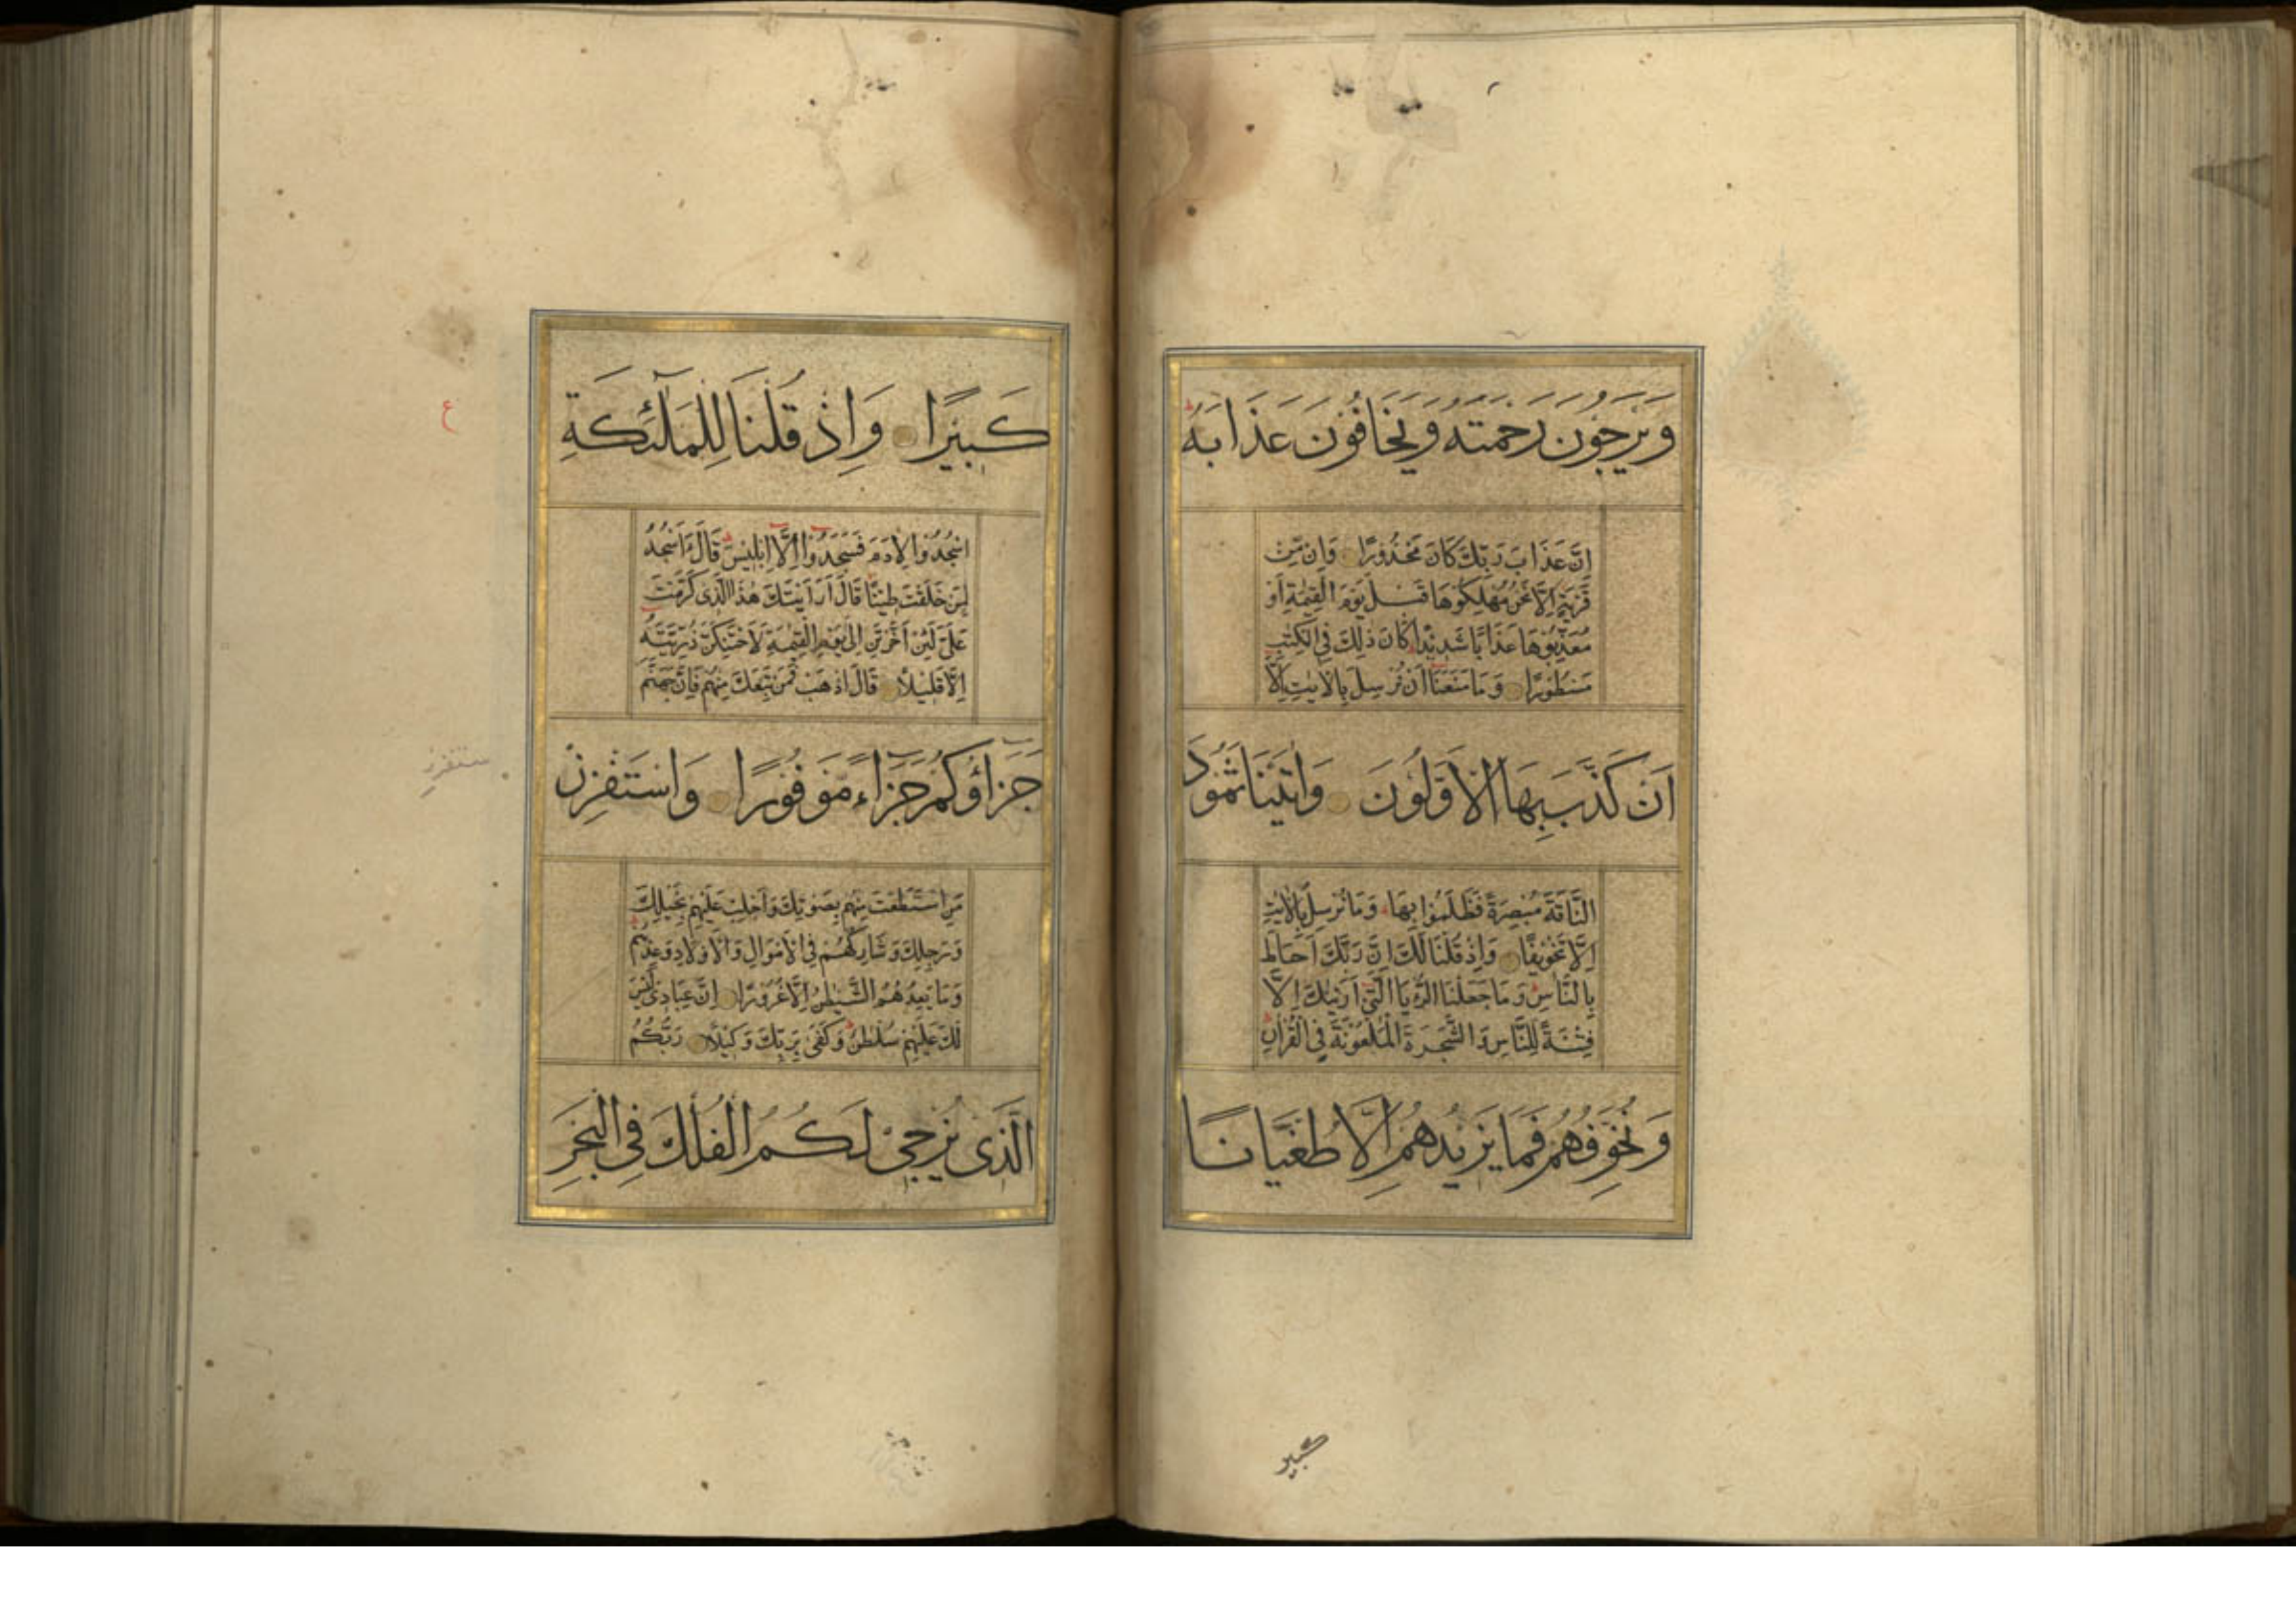 وَيَرْجُونَ رَحْمَتَهُ وَيَخَافُونَ عَذَابَهُ
اِنَّ عَذَابَ رَبِّكَ كَانَ مَحْذُورًا وَاِنْ مِّنْ
قَرْيَةٍ اِلَّا نَحْنُ مُهْلِكُوهَا قَبْلَ يَوْمِ الْقِيٰمَةِ اَوْ
مُعَذِّبُوهَا عَذَابًا شَدِيْدًا كَانَ ذٰلِكَ فِي الْكِتٰبِ
مَسْطُوْرًا وَمَا مَنَعَنَا اَنْ نُرْسِلَ بِالْاٰيٰتِ اِلَّا
اَنْ كَذَّبَ بِهَا الْاَوَّلُوْنَ وَاٰتَيْنَا ثَمُوْدَ
النَّاقَةَ مُبْصِرَةً فَظَلَمُوْا بِهَا وَمَا نُرْسِلُ بِالْاٰيٰتِ
اِلَّا تَخْوِيْفًا وَاِذْ قُلْنَا لَكَ اِنَّ رَبَّكَ اَحَاطَ
بِالنَّاسِ وَمَا جَعَلْنَا الرُّءْيَا الَّتِيْ اَرَيْنٰكَ اِلَّا
فِتْنَةً لِلنَّاسِ وَالشَّجَرَةَ الْمَلْعُوْنَةَ فِي الْقُرْاٰنِ
وَنُخَوِّفُهُمْ فَمَا يَزِيْدُهُمْ اِلَّا طُغْيَانًا
كبير
كَبِيْرًا وَاِذْ قُلْنَا لِلْمَلٰٓئِكَةِ
اسْجُدُوْا لِاٰدَمَ فَسَجَدُوْا اِلَّا اِبْلِيْسَ قَالَ ءَاَسْجُدُ
لِمَنْ خَلَقْتَ طِيْنًا قَالَ اَرَاَيْتَكَ هٰذَا الَّذِيْ كَرَّمْتَ
عَلَيَّ لَئِنْ اَخَّرْتَنِ اِلٰى يَوْمِ الْقِيٰمَةِ لَاَحْتَنِكَنَّ ذُرِّيَّتَهُ
اِلَّا قَلِيْلًا قَالَ اذْهَبْ فَمَنْ تَبِعَكَ مِنْهُمْ فَاِنَّ جَهَنَّمَ
جَزَاؤُكُمْ جَزَاءً مَّوْفُوْرًا وَاسْتَفْزِزْ
مَنِ اسْتَطَعْتَ مِنْهُمْ بِصَوْتِكَ وَاَجْلِبْ عَلَيْهِمْ بِخَيْلِكَ
وَرَجِلِكَ وَشَارِكْهُمْ فِي الْاَمْوَالِ وَالْاَوْلَادِ وَعِدْهُمْ
وَمَا يَعِدُهُمُ الشَّيْطٰنُ اِلَّا غُرُوْرًا اِنَّ عِبَادِيْ لَيْسَ
لَكَ عَلَيْهِمْ سُلْطٰنٌ وَكَفٰى بِرَبِّكَ وَكِيْلًا رَبُّكُمُ
الَّذِيْ يُزْجِيْ لَكُمُ الْفُلْكَ فِي الْبَحْرِ
ع